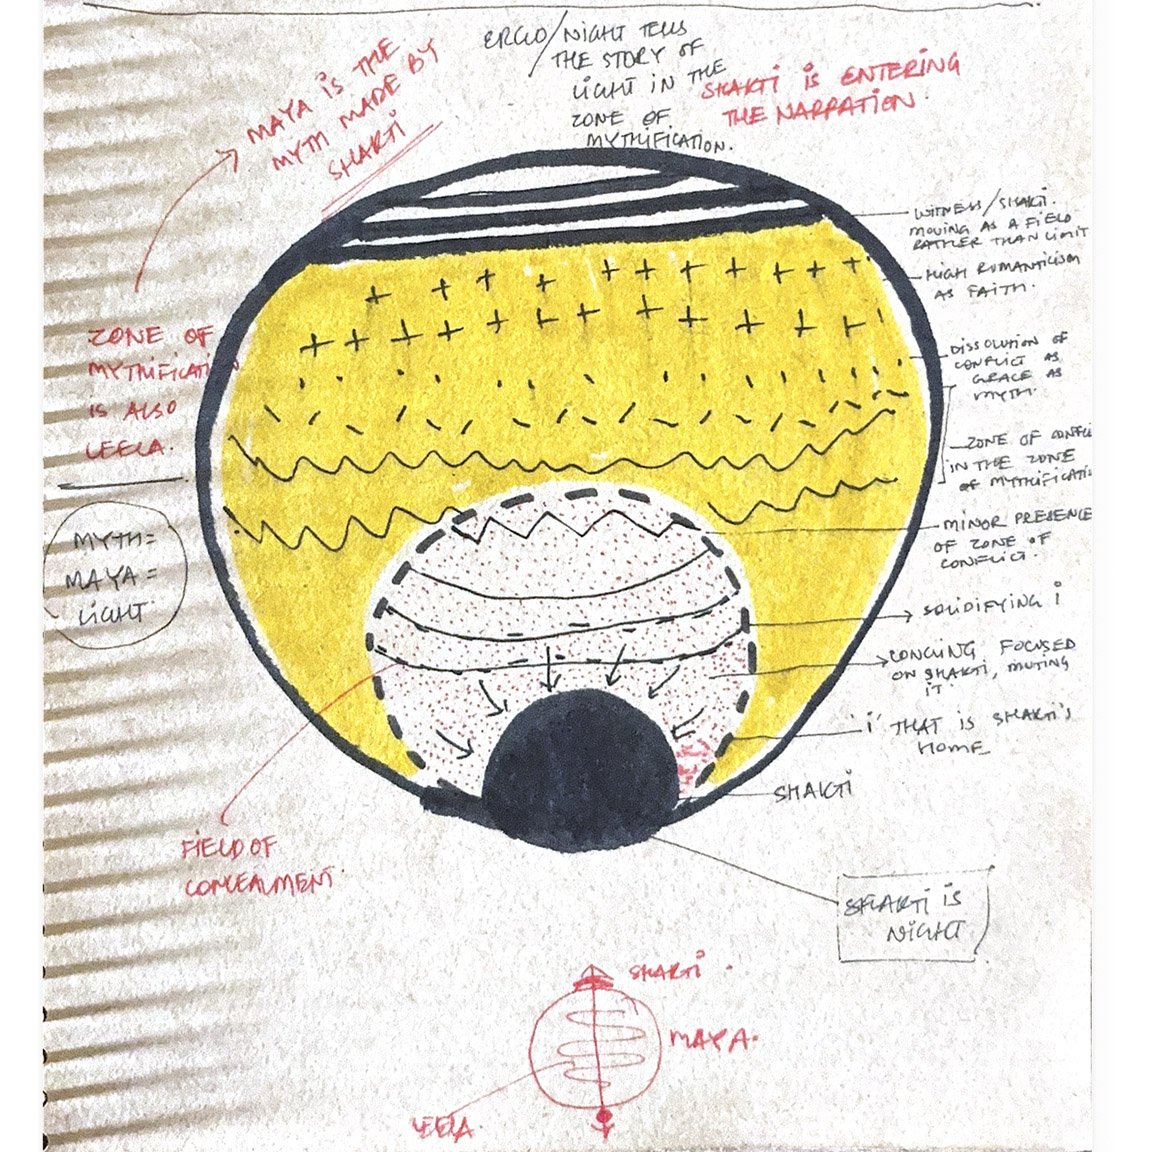 MAYA IS THE
MYTH MADE BY
SHAKTI
ERGO/NIGHT TELLS
THE STORY OF
LIGHT IN THE
ZONE OF
MYTHIFICATION.
SHAKTI IS ENTERING
THE NARRATION.
WITNESS/SHAKTI.
MOVING AS A FIELD
RATHER THAN LIMIT
HIGH ROMANTICISM
AS FAITH.
DISSOLUTION OF
CONFLICT AS
GRACE AS
MYTH.
ZONE OF CONFLI
IN THE ZONE
OF MYTHIFICATI
MINOR PRESENCE
OF ZONE OF
CONFLICT.
SOLIDIFYING i
FOCUSED
ON SHAKTI, MUTING
IT
'i' THAT IS SHAKTI'S
HOME
SHAKTI
SHAKTI IS
NIGHT
ZONE OF
MYTHIFICATI
IS ALSO
LEELA.
MYTH=
MAYA=
LIGHT
FIELD OF
CONCEALMENT.
SHAKTI.
MAYA.
LEELA.